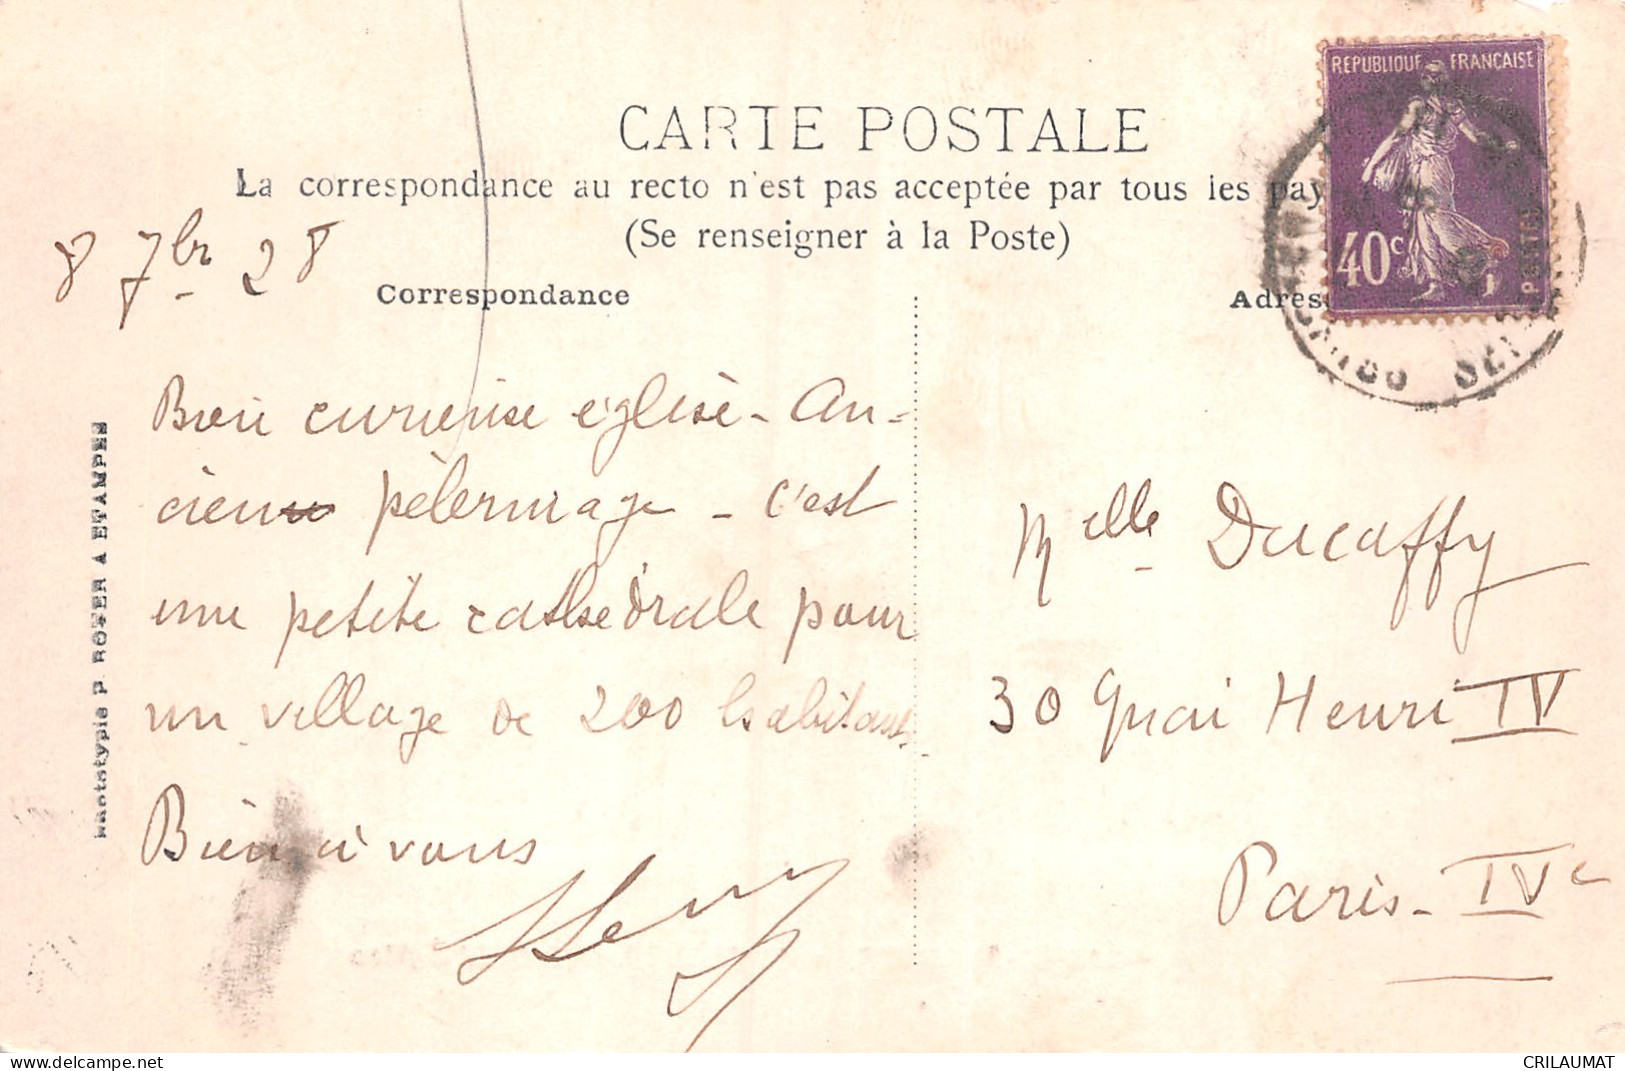 CARTE POSTALE
La correspondance au recto n'est pas acceptée par tous les pay
(Se renseigner à la Poste)
Correspondance
Adres
REPUBLIQUE FRANÇAISE
40c
POSTES
8 7bre 28
Bien curieuse église - An-
cien pèlerinage - C'est
une petite cathédrale pour
un village de 200 habitants.
Bien à vous
Melle Ducaffy
30 Quai Henri IV
Paris - IVe
Phototypie P. ROYER A ETAMPES
delcampe.net
CRILAUMAT